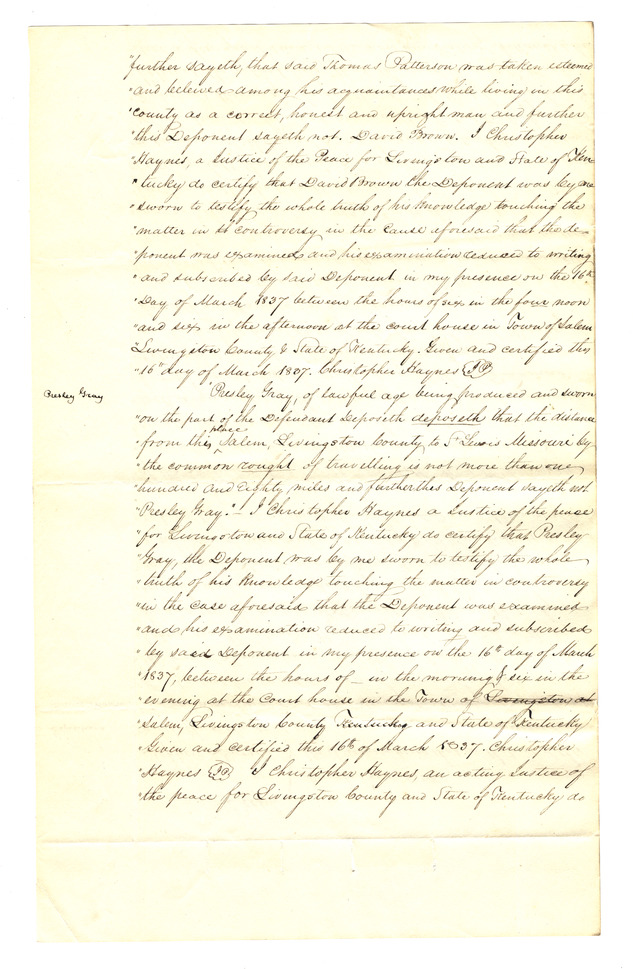 "further sayeth, that said Thomas Patterson was taken esteemed
"and beleived among his acquaintances while living in this
"county as a correct, honest and upright man and further
"this Deponent sayeth not. David Brown. I Christopher
"Haynes, a Justice of the Peace for Livingston and State of Ken
"tucky do certify that David Brown the Deponent was by me
"sworn to testify the whole truth of his knowledge touching the
"matter in sd controversy in the cause aforesaid that the de-
"ponent was examined and his examination reduced to writing
"and subscribed by said Deponent in my presence on the 16th
"Day of March 1837 between the hours of six in the four noon
"and six in the afternoon at the court house in Town of Salem
"Livingston County & State of Kentucky. Given and certified this
"16th day of March 1807. Christopher Haynes JP
Presley Gray
Presley Gray, of lawful age being produced and sworn
"on the part of the Defendant Deposeth deposeth that the distance
"from this place Salem, Livingston County to St Lewis Missouri by
"the common rought of travelling is not more than one
"hundred and Eighty miles and further this Deponent sayeth not
"Presley Gray." I Christopher Haynes a Justice of the peace
"for Livingston and State of Kentucky do certify that Presley
"Gray, the Deponent was by me sworn to testify the whole
"truth of his knowledge touching the matter in controversy
"in the case aforesaid that the Deponent was examined
"and his examination reduced to writing and subscribed
"by said Deponent in my presence on the 16th day of March
"1837, between the hours of — in the morning & six in the
"evening at the Court house in the Town of Livingston at
"Salem, Livingston County Kentucky and State of Kentucky
"Given and certified this 16th of March 1837. Christopher
"Haynes JP I Christopher Haynes, an acting Justice of
"the peace for Livingston County and State of Kentucky do